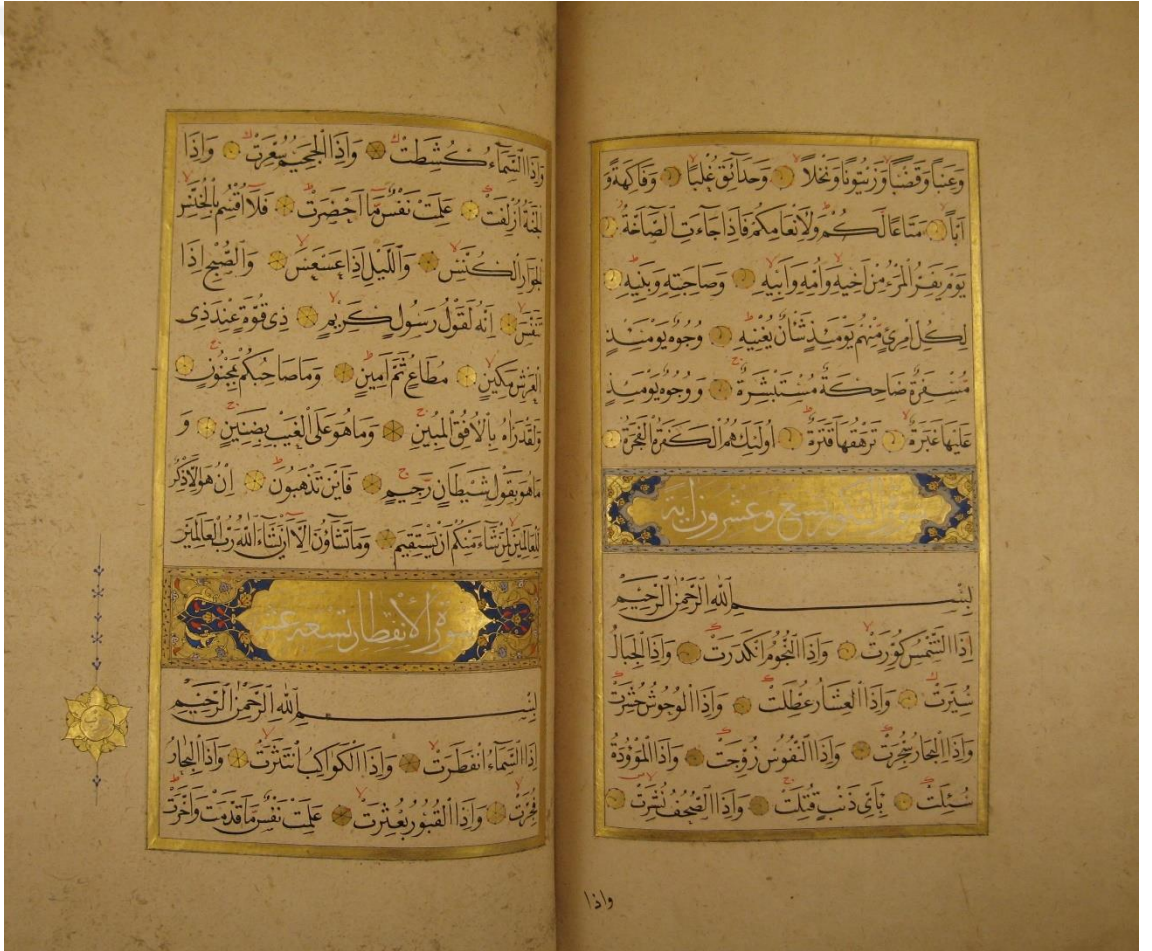 وَعِنَباً وَقَضْباً وَزَيْتُوناً وَنَخْلاً وَحَدَائِقَ غُلْباً وَفَاكِهَةً وَ
اَبّاً مَتَاعاً لَكُمْ وَلِاَنْعَامِكُمْ فَاِذَا جَاءَتِ الصَّاخَّةُ
يَوْمَ يَفِرُّ الْمَرْءُ مِنْ اَخِيهِ وَاُمِّهِ وَاَبِيهِ وَصَاحِبَتِهِ وَبَنِيهِ
لِكُلِّ امْرِئٍ مِنْهُمْ يَوْمَئِذٍ شَاْنٌ يُغْنِيهِ وُجُوهٌ يَوْمَئِذٍ
مُسْفِرَةٌ ضَاحِكَةٌ مُسْتَبْشِرَةٌ وَوُجُوهٌ يَوْمَئِذٍ
عَلَيْهَا غَبَرَةٌ تَرْهَقُهَا قَتَرَةٌ اُولَئِكَ هُمُ الْكَفَرَةُ الْفَجَرَةُ
سورة التكوير تسع وعشرون اية
بِسْمِ اللّٰهِ الرَّحْمٰنِ الرَّحِيمِ
اِذَا الشَّمْسُ كُوِّرَتْ وَاِذَا النُّجُومُ انْكَدَرَتْ وَاِذَا الْجِبَالُ
سُيِّرَتْ وَاِذَا الْعِشَارُ عُطِّلَتْ وَاِذَا الْوُحُوشُ حُشِرَتْ
وَاِذَا الْبِحَارُ سُجِّرَتْ وَاِذَا النُّفُوسُ زُوِّجَتْ وَاِذَا الْمَوْؤُدَةُ
سُئِلَتْ بِاَىِّ ذَنْبٍ قُتِلَتْ وَاِذَا الصُّحُفُ نُشِرَتْ
واذا
وَاِذَا السَّمَاءُ كُشِطَتْ وَاِذَا الْجَحِيمُ سُعِّرَتْ وَاِذَا
الْجَنَّةُ اُزْلِفَتْ عَلِمَتْ نَفْسٌ مَا اَحْضَرَتْ فَلَا اُقْسِمُ بِالْخُنَّسِ
الْجَوَارِ الْكُنَّسِ وَالَّيْلِ اِذَا عَسْعَسَ وَالصُّبْحِ اِذَا
تَنَفَّسَ اِنَّهُ لَقَوْلُ رَسُولٍ كَرِيمٍ ذِى قُوَّةٍ عِنْدَ ذِى
الْعَرْشِ مَكِينٍ مُطَاعٍ ثَمَّ اَمِينٍ وَمَا صَاحِبُكُمْ بِمَجْنُونٍ
وَلَقَدْ رَاٰهُ بِالْاُفُقِ الْمُبِينِ وَمَا هُوَ عَلَى الْغَيْبِ بِضَنِينٍ وَ
مَا هُوَ بِقَوْلِ شَيْطَانٍ رَجِيمٍ فَاَيْنَ تَذْهَبُونَ اِنْ هُوَ اِلَّا ذِكْرٌ
لِلْعَالَمِينَ لِمَنْ شَاءَ مِنْكُمْ اَنْ يَسْتَقِيمَ وَمَا تَشَاؤُنَ اِلَّا اَنْ يَشَاءَ اللّٰهُ رَبُّ الْعَالَمِينَ
سورة الأنفطار تسعه عشر
بِسْمِ اللّٰهِ الرَّحْمٰنِ الرَّحِيمِ
اِذَا السَّمَاءُ انْفَطَرَتْ وَاِذَا الْكَوَاكِبُ انْتَثَرَتْ وَاِذَا الْبِحَارُ
فُجِّرَتْ وَاِذَا الْقُبُورُ بُعْثِرَتْ عَلِمَتْ نَفْسٌ مَا قَدَّمَتْ وَاَخَّرَتْ